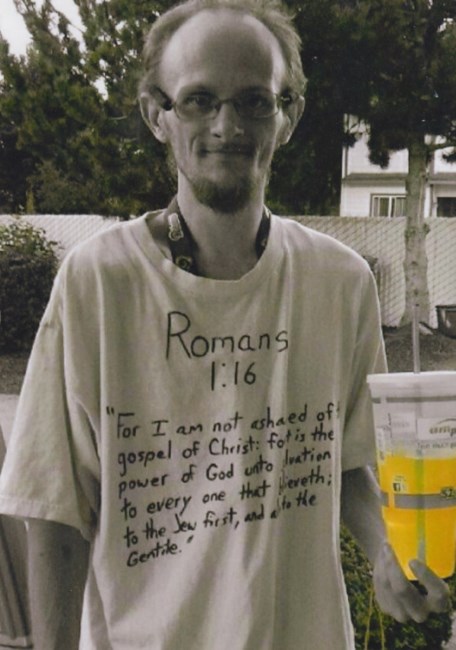 Romans
1:16
"For I am not ashaed of
gospel of Christ: for is the
power of God unto lvation
to every one that liereth;
to the Jew first, and a to the
Gentile."
32